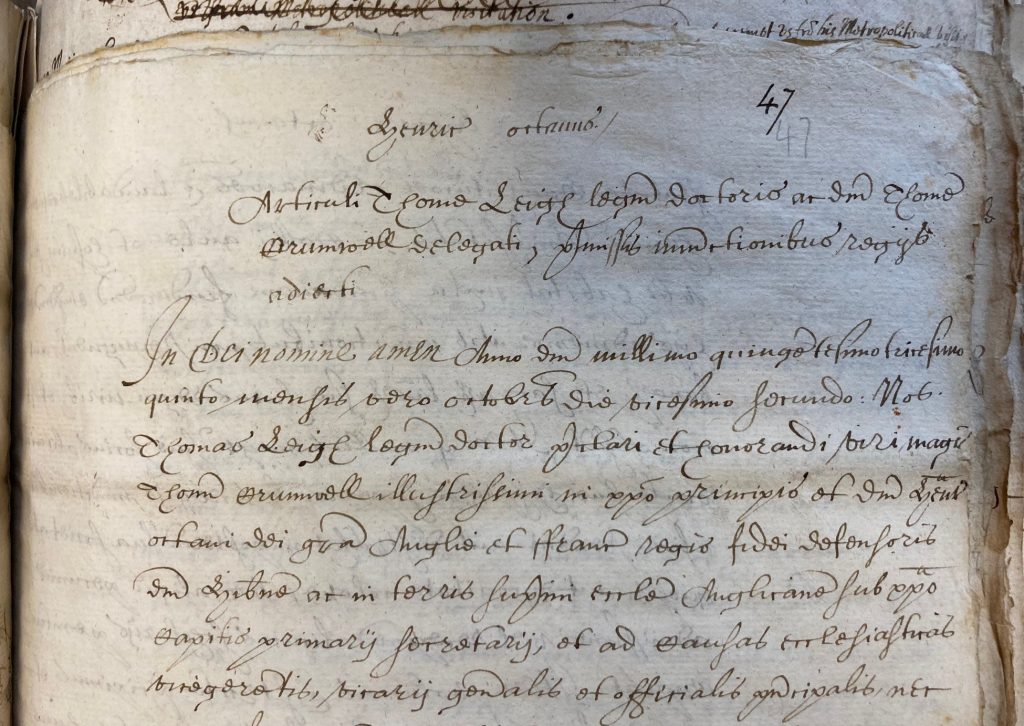 visitation.
his Metropolitical
47
47
Henric octauus./
Articuli Thome Leigh legm doctoris ac dm Thome
Crumwell delegati, pmissis iniunctionibus regijs
adiecti
In Dei nomine amen Anno dm millimo quingetesimo tricesimo
quinto mensis vero octobrs die vicesimo secundo: Nos.
Thomas Leigh legm doctor pclari et honorandi viri, magri
Thome Crumwell illustrissimi in xpo principis et dm Henr
octaui dei gra Anglie et ffranc regis fidei defensoris
dm Hibne ac in terris supmi eccle Anglicane sub xpo
Capitis primarij secretarij, et ad Causas ecclesiasticas
vicegerentis, vicarij genalis et officialis pncipalis, nec